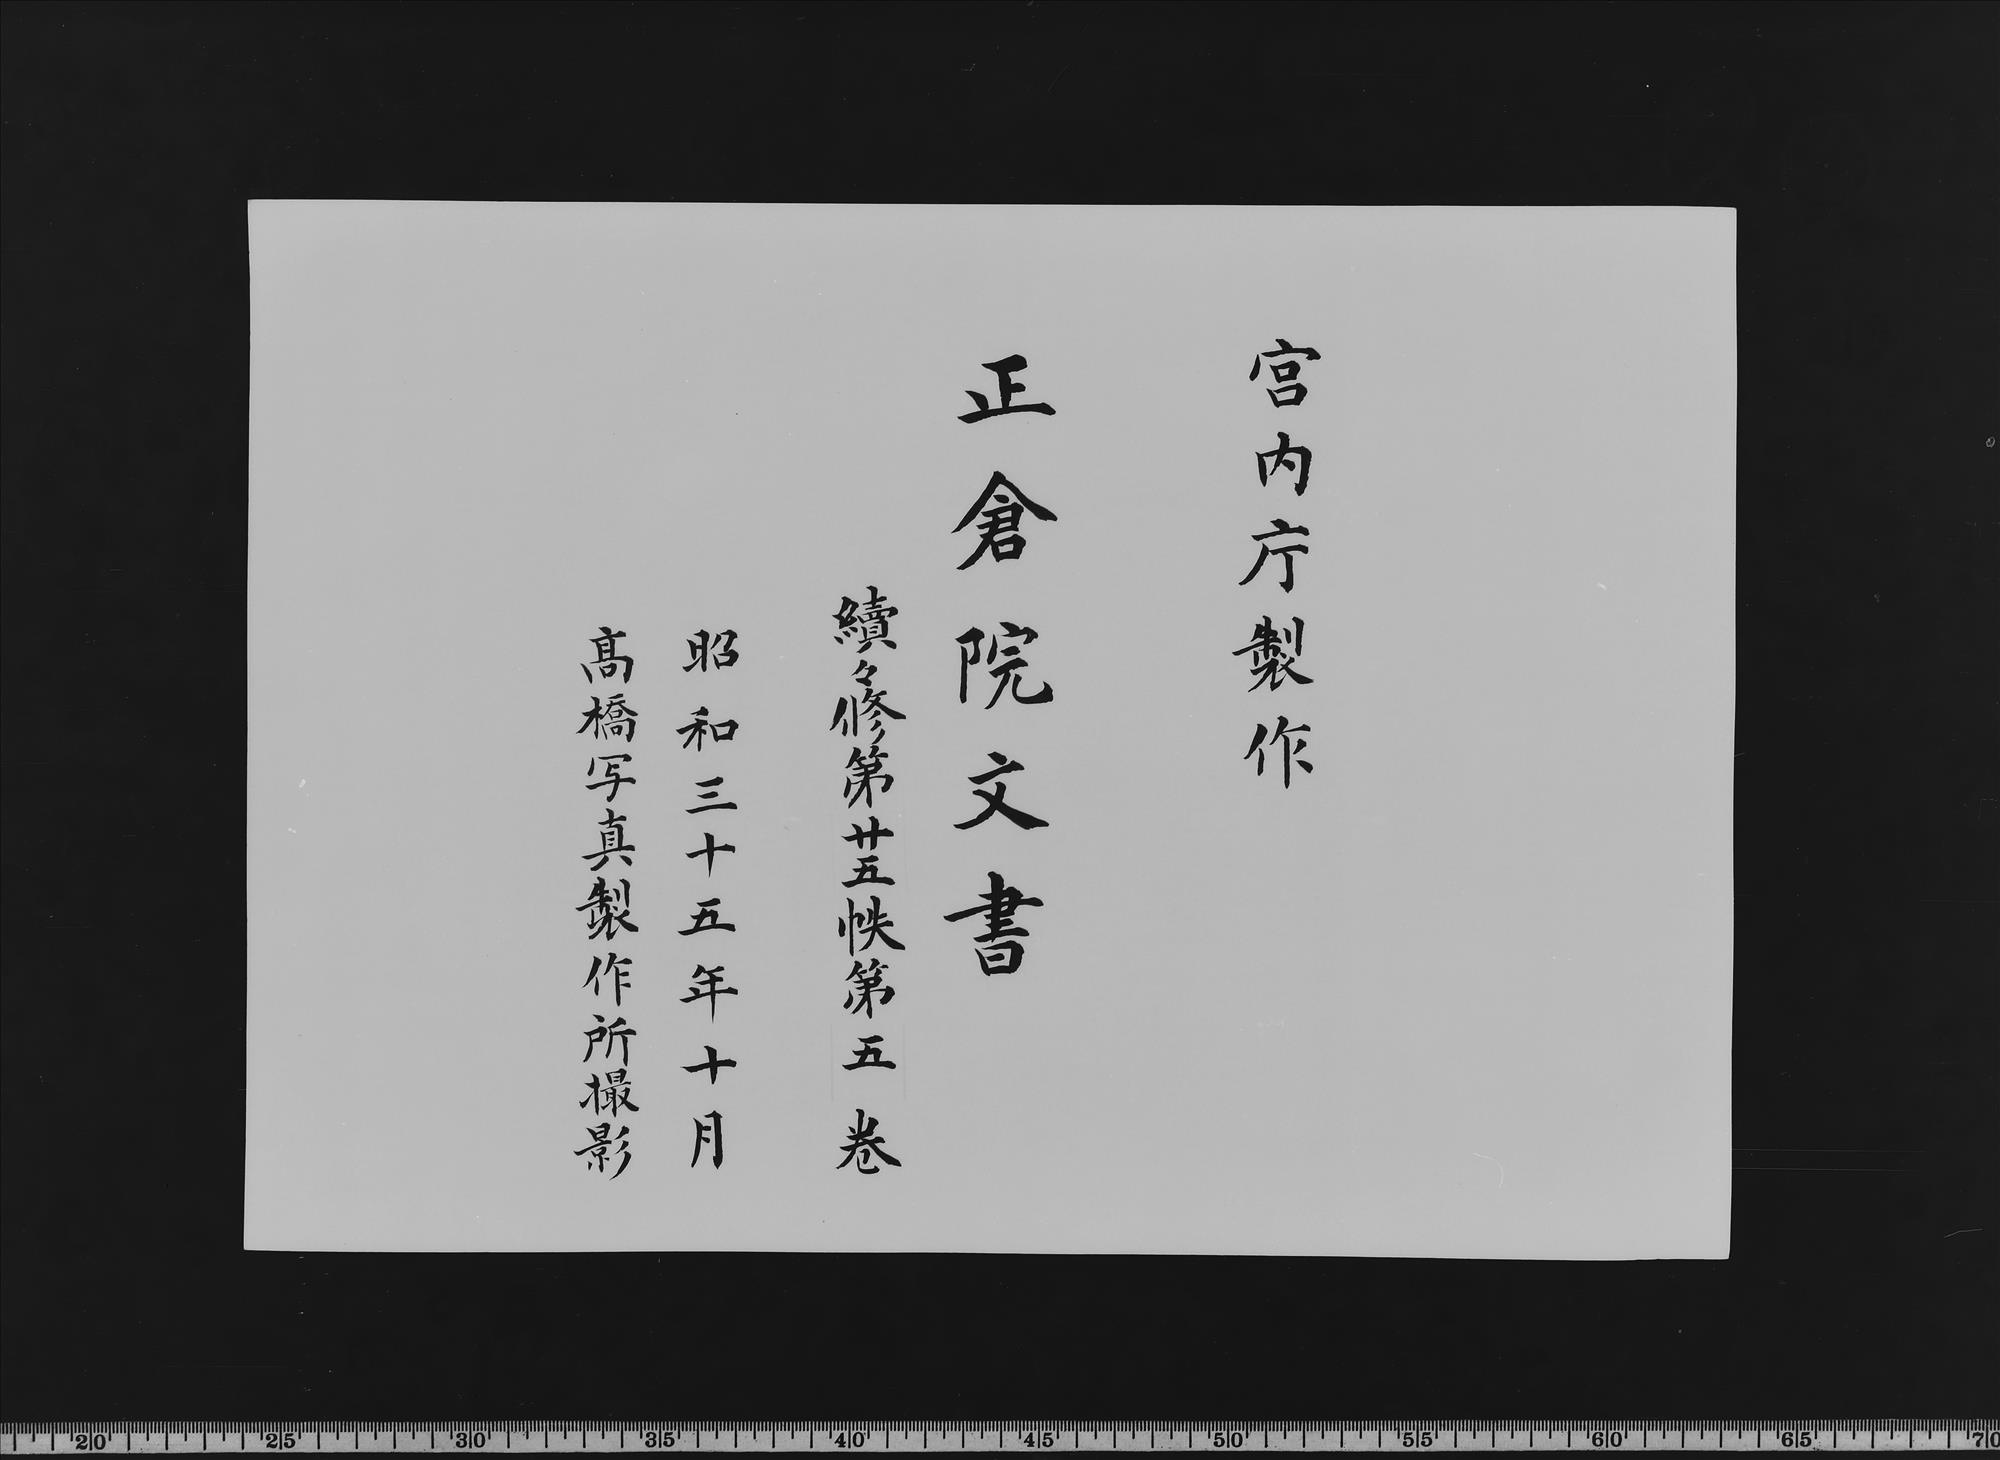 宮内庁製作
正倉院文書
續々修第廿五帙第五卷
昭和三十五年十月
髙橋写真製作所撮影
20 25 30 35 40 45 50 55 60 65 70